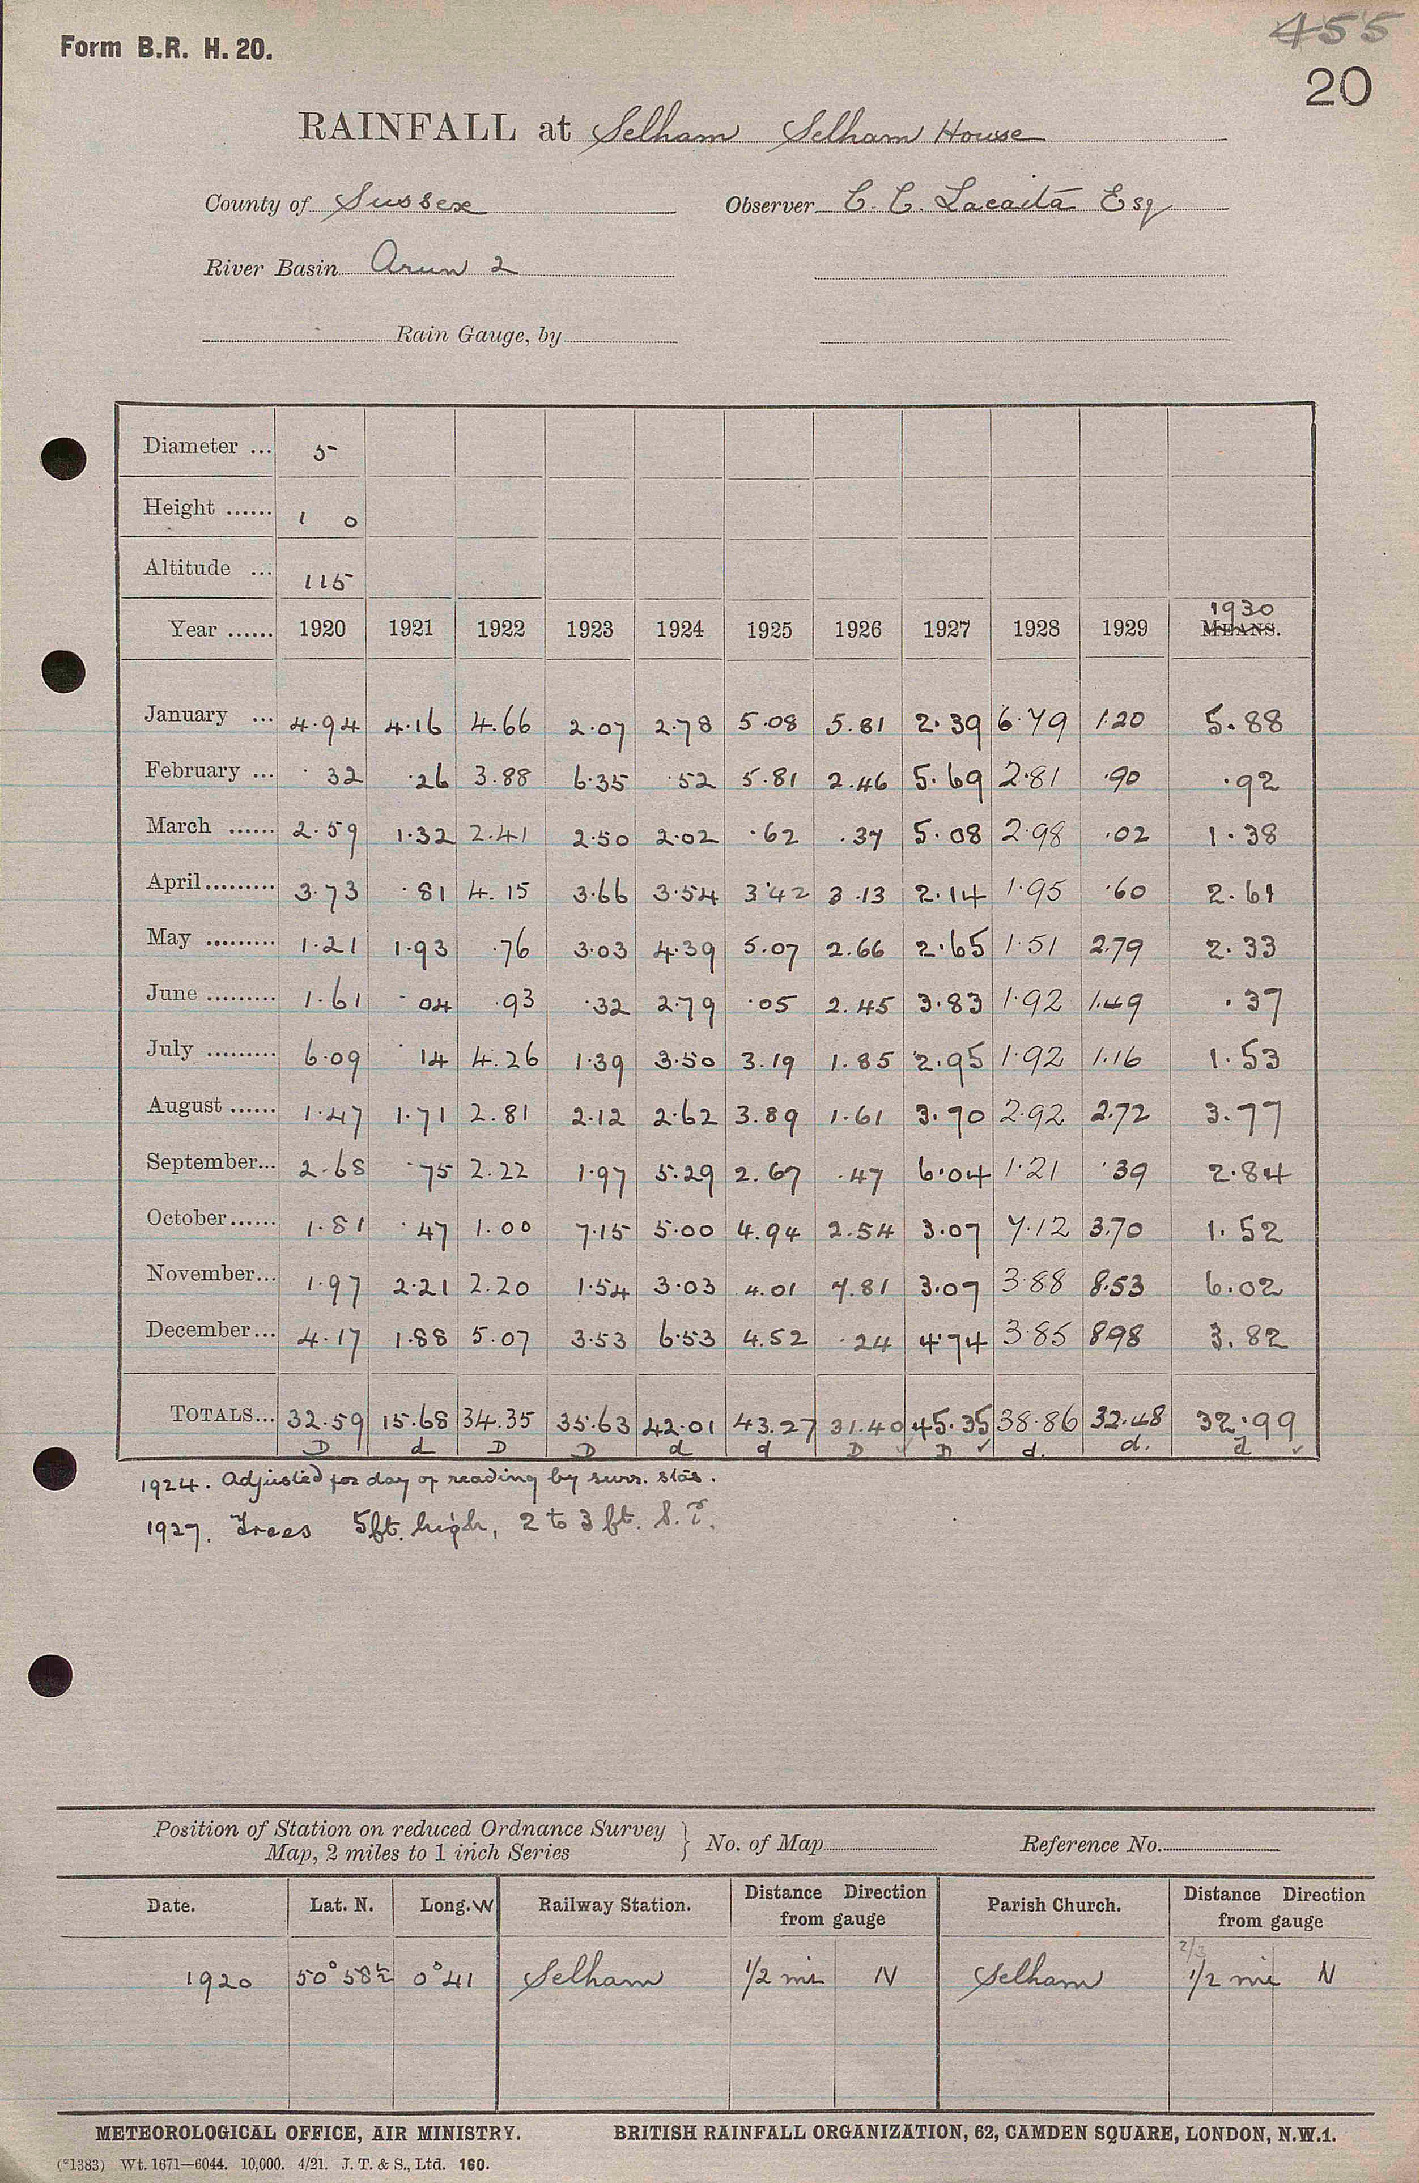 455
Form B.R. H. 20.
20
RAINFALL at Selham Selham House
County of Sussex Observer C. C. Lacaita Esq
River Basin Arun 2
Rain Gauge, by
Diameter ... 5
Height ...... 1 0
Altitude ... 115
1930
Year ...... 1920 1921 1922 1923 1924 1925 1926 1927 1928 1929 MEANS.
January ... 4.94 4.16 4.66 2.07 2.78 5.08 5.81 2.39 6.79 1.20 5.88
February ... .32 .26 3.88 6.35 .52 5.81 2.46 5.69 2.81 .90 .92
March ...... 2.59 1.32 2.41 2.50 2.02 .62 .37 5.08 2.98 .02 1.38
April ......... 3.73 .81 4.15 3.66 3.54 3.42 3.13 2.14 1.95 .60 2.61
May ......... 1.21 1.93 .76 3.03 4.39 5.07 2.66 2.65 1.51 2.79 2.33
June ......... 1.61 .04 .93 .32 2.79 .05 2.45 3.83 1.92 1.49 .37
July ......... 6.09 .14 4.26 1.39 3.50 3.19 1.85 2.95 1.92 1.16 1.53
August ...... 1.47 1.71 2.81 2.12 2.62 3.89 1.61 3.70 2.92 2.72 3.77
September... 2.68 .75 2.22 1.97 5.29 2.67 .47 6.04 1.21 .39 2.84
October...... 1.81 .47 1.00 7.15 5.00 4.94 2.54 3.07 7.12 3.70 1.52
November... 1.97 2.21 2.20 1.54 3.03 4.01 7.81 3.07 3.88 8.53 6.02
December... 4.17 1.88 5.07 3.53 6.53 4.52 .24 4.74 3.85 8.98 3.82
TOTALS... 32.59 15.68 34.35 35.63 42.01 43.27 31.40 45.35 38.86 32.48 32.99
D d D D d d D D d. d. d
1924. Adjusted for day of reading by surr. stas.
1927. Trees 5ft. high, 2 to 3 ft. S.
Position of Station on reduced Ordnance Survey
Map, 2 miles to 1 inch Series } No. of Map Reference No.
Date. Lat. N. Long. W Railway Station. Distance Direction from gauge Parish Church. Distance Direction from gauge
2/3
1920 50°58½ 0°41 Selham 1/2 mi N Selham 1/2 mi N
METEOROLOGICAL OFFICE, AIR MINISTRY. BRITISH RAINFALL ORGANIZATION, 62, CAMDEN SQUARE, LONDON, N.W.1.
(*1383) Wt. 1671—6044. 10,000. 4/21. J. T. & S., Ltd. 160.